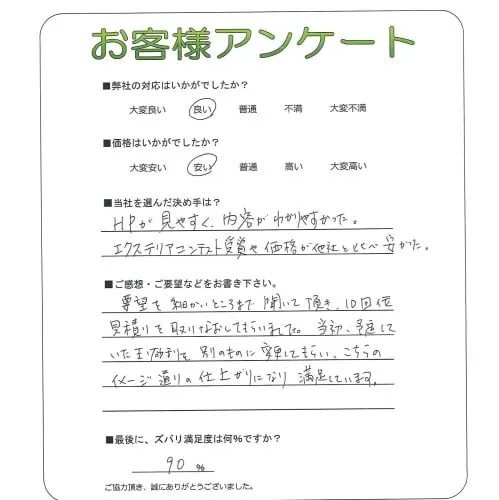 お客様アンケート
■弊社の対応はいかがでしたか？
大変良い 良い 普通 不満 大変不満
■価格はいかがでしたか？
大変安い 安い 普通 高い 大変高い
■当社を選んだ決め手は？
HPが見やすく、内容がわかりやすかった。
エクステリアコンテスト受賞や価格が他社と比べ安かった。
■ご感想・ご要望などをお書き下さい。
要望を細かいところまで聞いて頂き、10回位
見積りを取りなおしてもらいました。当初、予定して
いた玉砂利を別のものに変更してもらい、こちらの
イメージ通りの仕上がりになり満足しています。
■最後に、ズバリ満足度は何％ですか？
90 %
ご協力頂き、誠にありがとうございました。